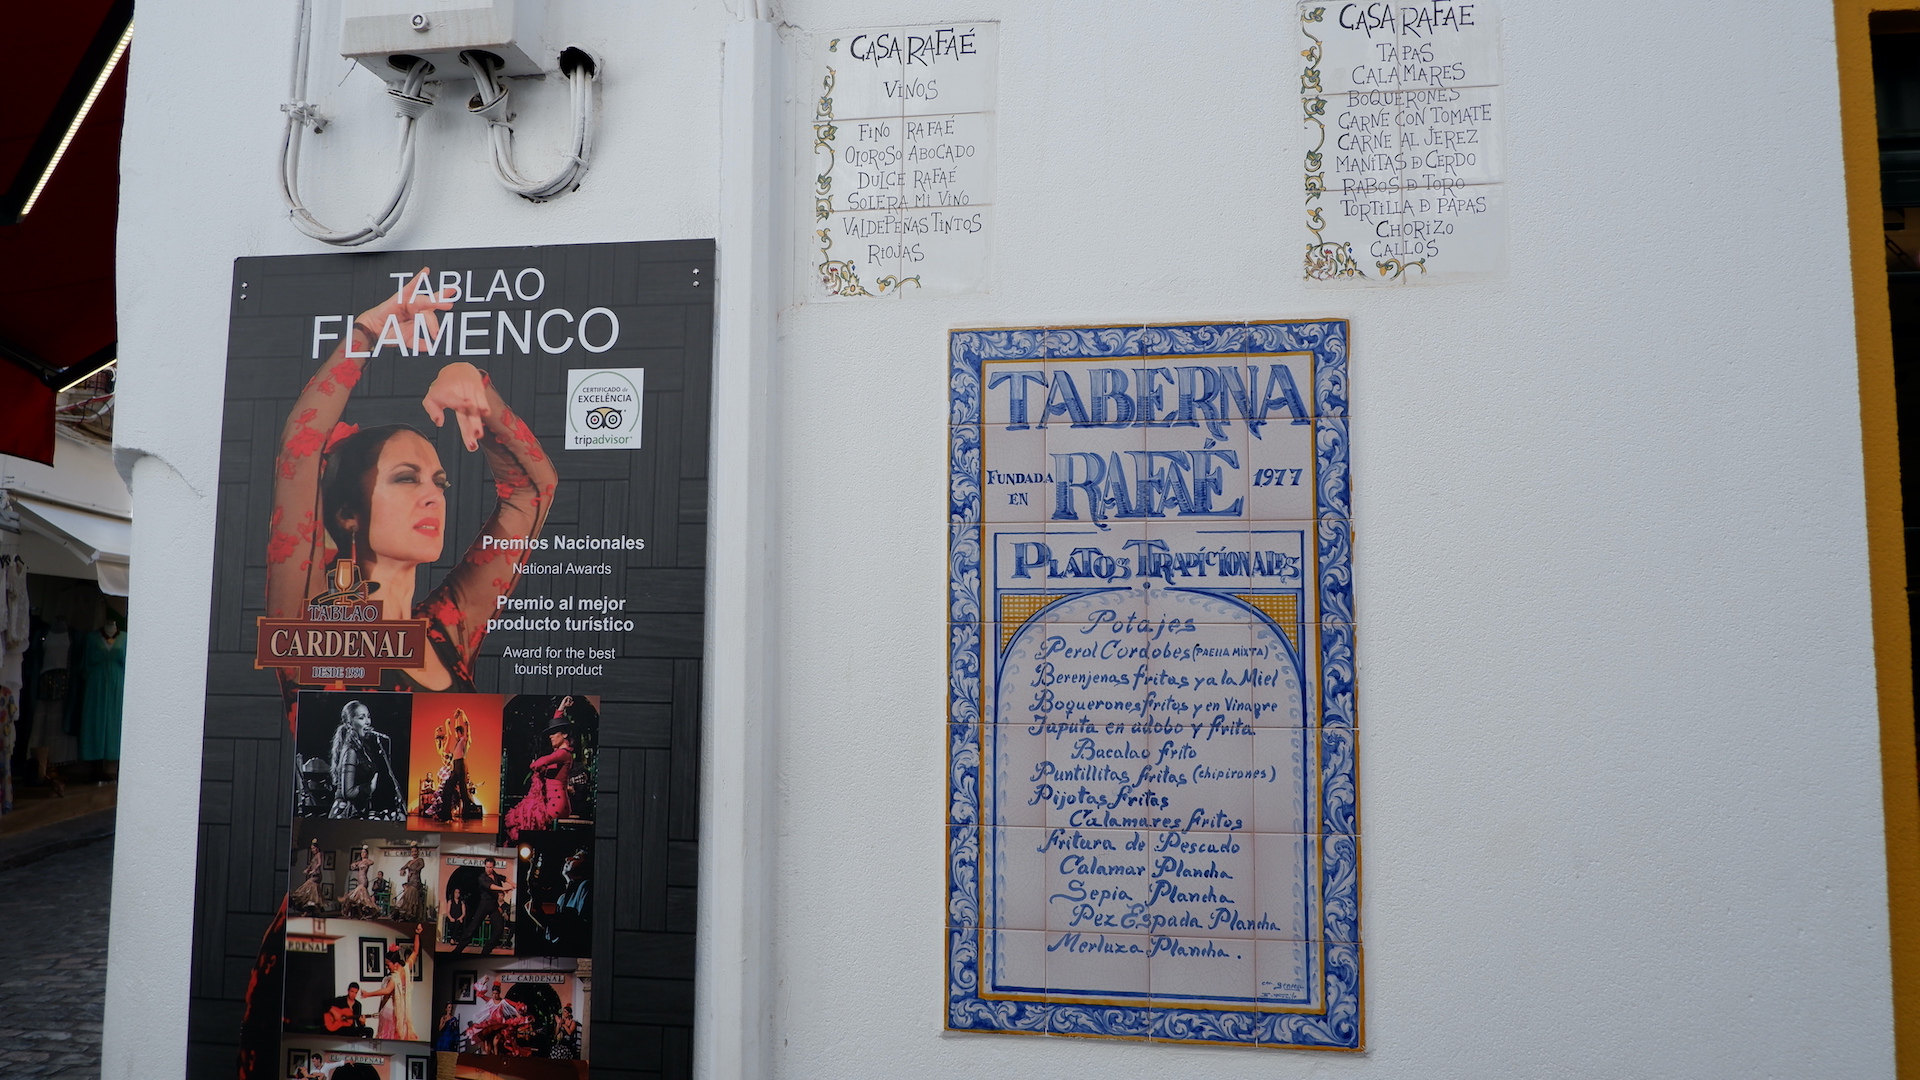 TABLAO
FLAMENCO
CERTIFICADO de
EXCELÊNCIA
tripadvisor
Premios Nacionales
National Awards
Premio al mejor
producto turístico
Award for the best
tourist product
TABLAO
CARDENAL
DESDE 1990
EL CARDENAL
EL CARDENAL
EL CARDENAL
EL CARDENAL
CASA RAFAÉ
VINOS
FINO RAFAÉ
OLOROSO ABOCADO
DULCE RAFAÉ
SOLERA MI VINO
VALDEPEÑAS TINTOS
RIOJAS
CASA RAFAE
TAPAS
CALAMARES
BOQUERONES
CARNE CON TOMATE
CARNE AL JEREZ
MANITAS D CERDO
RABOS D TORO
TORTILLA D PAPAS
CHORIZO
CALLOS
TABERNA
FUNDADA EN RAFAÉ 1977
PLATOS TRADICIONALES
Potajes
Perol Cordobes (PAELLA MIXTA)
Berenjenas fritas y a la Miel
Boquerones fritos y en Vinagre
Japuta en adobo y frita
Bacalao frito
Puntillitas fritas (chipirones)
Pijotas fritas
Calamares fritos
Fritura de Pescado
Calamar Plancha
Sepia Plancha
Pez Espada Plancha
Merluza Plancha.